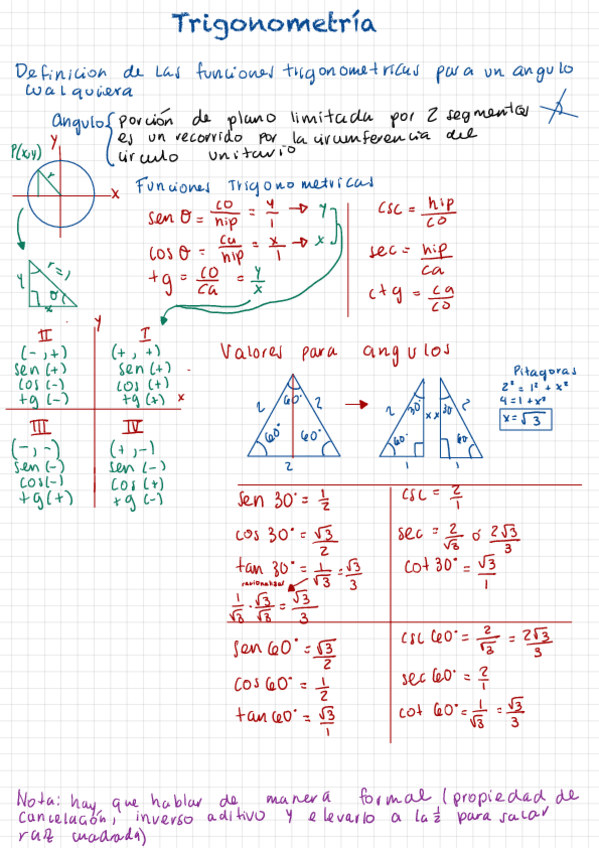 Trigonometría
Definicion de las funciones trigonometricas para un angulo
cualquiera
Angulo { porción de plano limitada por 2 segmentos
es un recorrido por la circumferencia del
circulo unitario
P(x,y)
y
r
x
Funciones Trigonometricas
sen θ = co/hip = y/1 → y
cos θ = ca/hip = x/1 → x
tg = co/ca = y/x
csc = hip/co
sec = hip/ca
ctg = ca/co
y
r=1
θ
x
y
x
II
(-,+)
sen (+)
cos (-)
tg (-)
I
(+,+)
sen (+)
cos (+)
tg (+)
III
(-,-)
sen (-)
cos (-)
tg (+)
IV
(+,-)
sen (-)
cos (+)
tg (-)
Valores para angulos
2 60° 2
60° 60°
2
→
2 30° x x 30° 2
60° 60°
1 1
Pitagoras
2² = 1² + x²
4 = 1 + x²
x = √3
sen 30° = 1/2
cos 30° = √3/2
tan 30° = 1/√3 = √3/3
racionalizar
1/√3 · √3/√3 = √3/3
csc = 2/1
sec = 2/√3 ó 2√3/3
cot 30° = √3/1
sen 60° = √3/2
cos 60° = 1/2
tan 60° = √3/1
csc 60° = 2/√3 = 2√3/3
sec 60° = 2/1
cot 60° = 1/√3 = √3/3
Nota: hay que hablar de manera formal (propiedad de
cancelación, inverso aditivo y elevarlo a la ½ para sacar
raíz cuadrada)